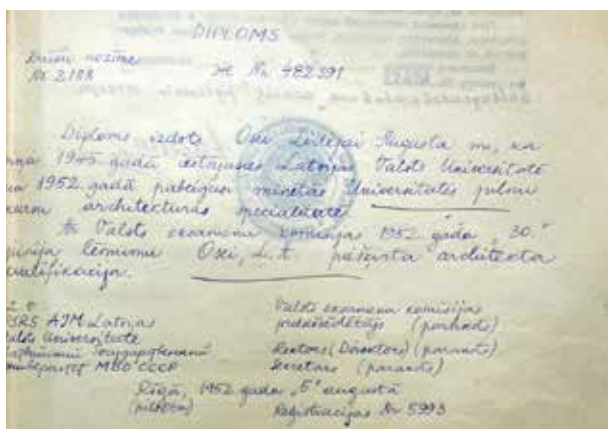 DIPLOMS
Nr 2188
Ж № 482591
Diploms izdots Osei Augusta m., ka
1945. gadā iestājusies Latvijas Valsts Universitātē
1952. gadā pabeigusi minētās Universitātes pilnu
architektūras specialitātē
Ar Valsts eksāmenu komisijas 1952 gada "30."
lēmumu Osei, L. A. piešķirta architekta
kvalifikācija.
PSRS AIM Latvijas
Valsts Universitāte
Государственный
Университет МВО СССР
Valsts eksāmenu komisijas
priekšsēdētājs (paraksts)
Rektors (Direktors) (paraksts)
Sekretārs (paraksts)
Rīgā, 1952 gada "5" augustā
(pilsēta)
Registrācijas Nr 5993